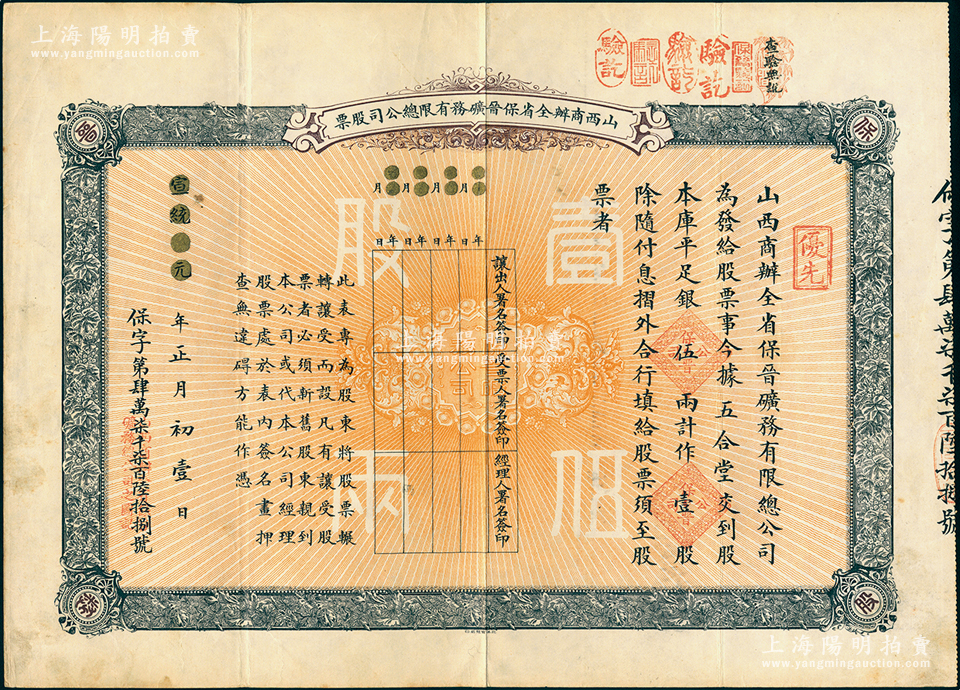 上海陽明拍賣
www.yangmingauction.com
驗訖
驗訖
驗訖
查驗無訛
山西商辦全省保晉礦務有限總公司股票
保
晉
股
票
壹股
伍兩
優先
山西商辦全省保晉礦務有限總公司
為發給股票事今據五合堂交到股
本庫平足銀伍兩計作壹股
除隨付息摺外合行填給股票須至股
票者
年月日
年月日
年月日
年月日
讓出人署名簽印
受票人署名簽印
經理人署名簽印
此表專為股東將股票輾
轉讓受而設凡有讓受股
票者必須新舊股東親到
本公司或代本公司經理
股票處於表內簽名畫押
查無違碍方能作憑
宣統元年正月初壹日
保字第肆萬柒千柒百陸拾捌號
保字第肆萬柒千柒百陸拾捌號
上海陽明拍賣
www.yangmingauction.com
上海陽明拍賣
www.yangmingauction.com